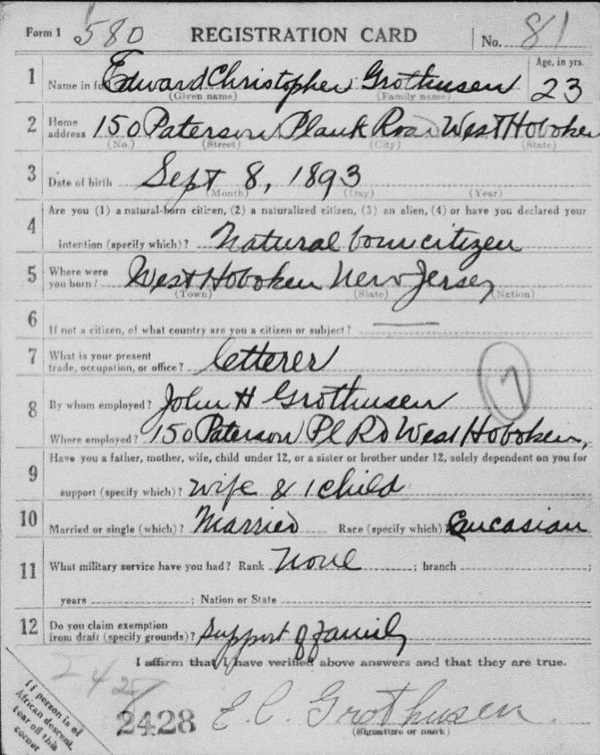 Form 1 580 REGISTRATION CARD No. 81
1 Name in full Edward Christopher Grothusen Age, in yrs. 23
(Given name) (Family name)
2 Home address 150 Paterson Plank Road West Hoboken
(No.) (Street) (City) (State)
3 Date of birth Sept 8, 1893
(Month) (Day) (Year)
4 Are you (1) a natural-born citizen, (2) a naturalized citizen, (3) an alien, (4) or have you declared your
intention (specify which)? Natural born citizen
5 Where were you born? West Hoboken New Jersey
(Town) (State) (Nation)
6 If not a citizen, of what country are you a citizen or subject?
7 What is your present trade, occupation, or office? letterer
7
8 By whom employed? John H Grothusen
Where employed? 150 Paterson Pl Rd West Hoboken,
9 Have you a father, mother, wife, child under 12, or a sister or brother under 12, solely dependent on you for
support (specify which)? wife & 1 child
10 Married or single (which)? Married Race (specify which)? Caucasian
11 What military service have you had? Rank None ; branch ;
years ; Nation or State
12 Do you claim exemption from draft (specify grounds)? Support of family
I affirm that I have verified above answers and that they are true.
2428
2428 E. C. Grothusen.
(Signature or mark)
If person is of
African descent,
tear off this
corner